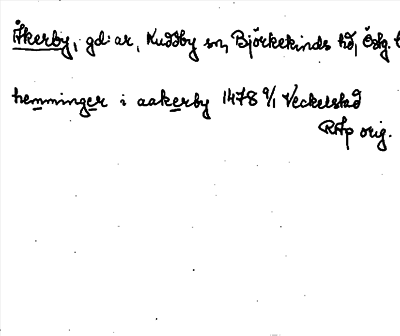 Åkerby, gd:ar, Kuddby sn, Björkekinds hd, Östg.
hemminger i aakerby 1478 9/1 Veckelstad
RAp orig.